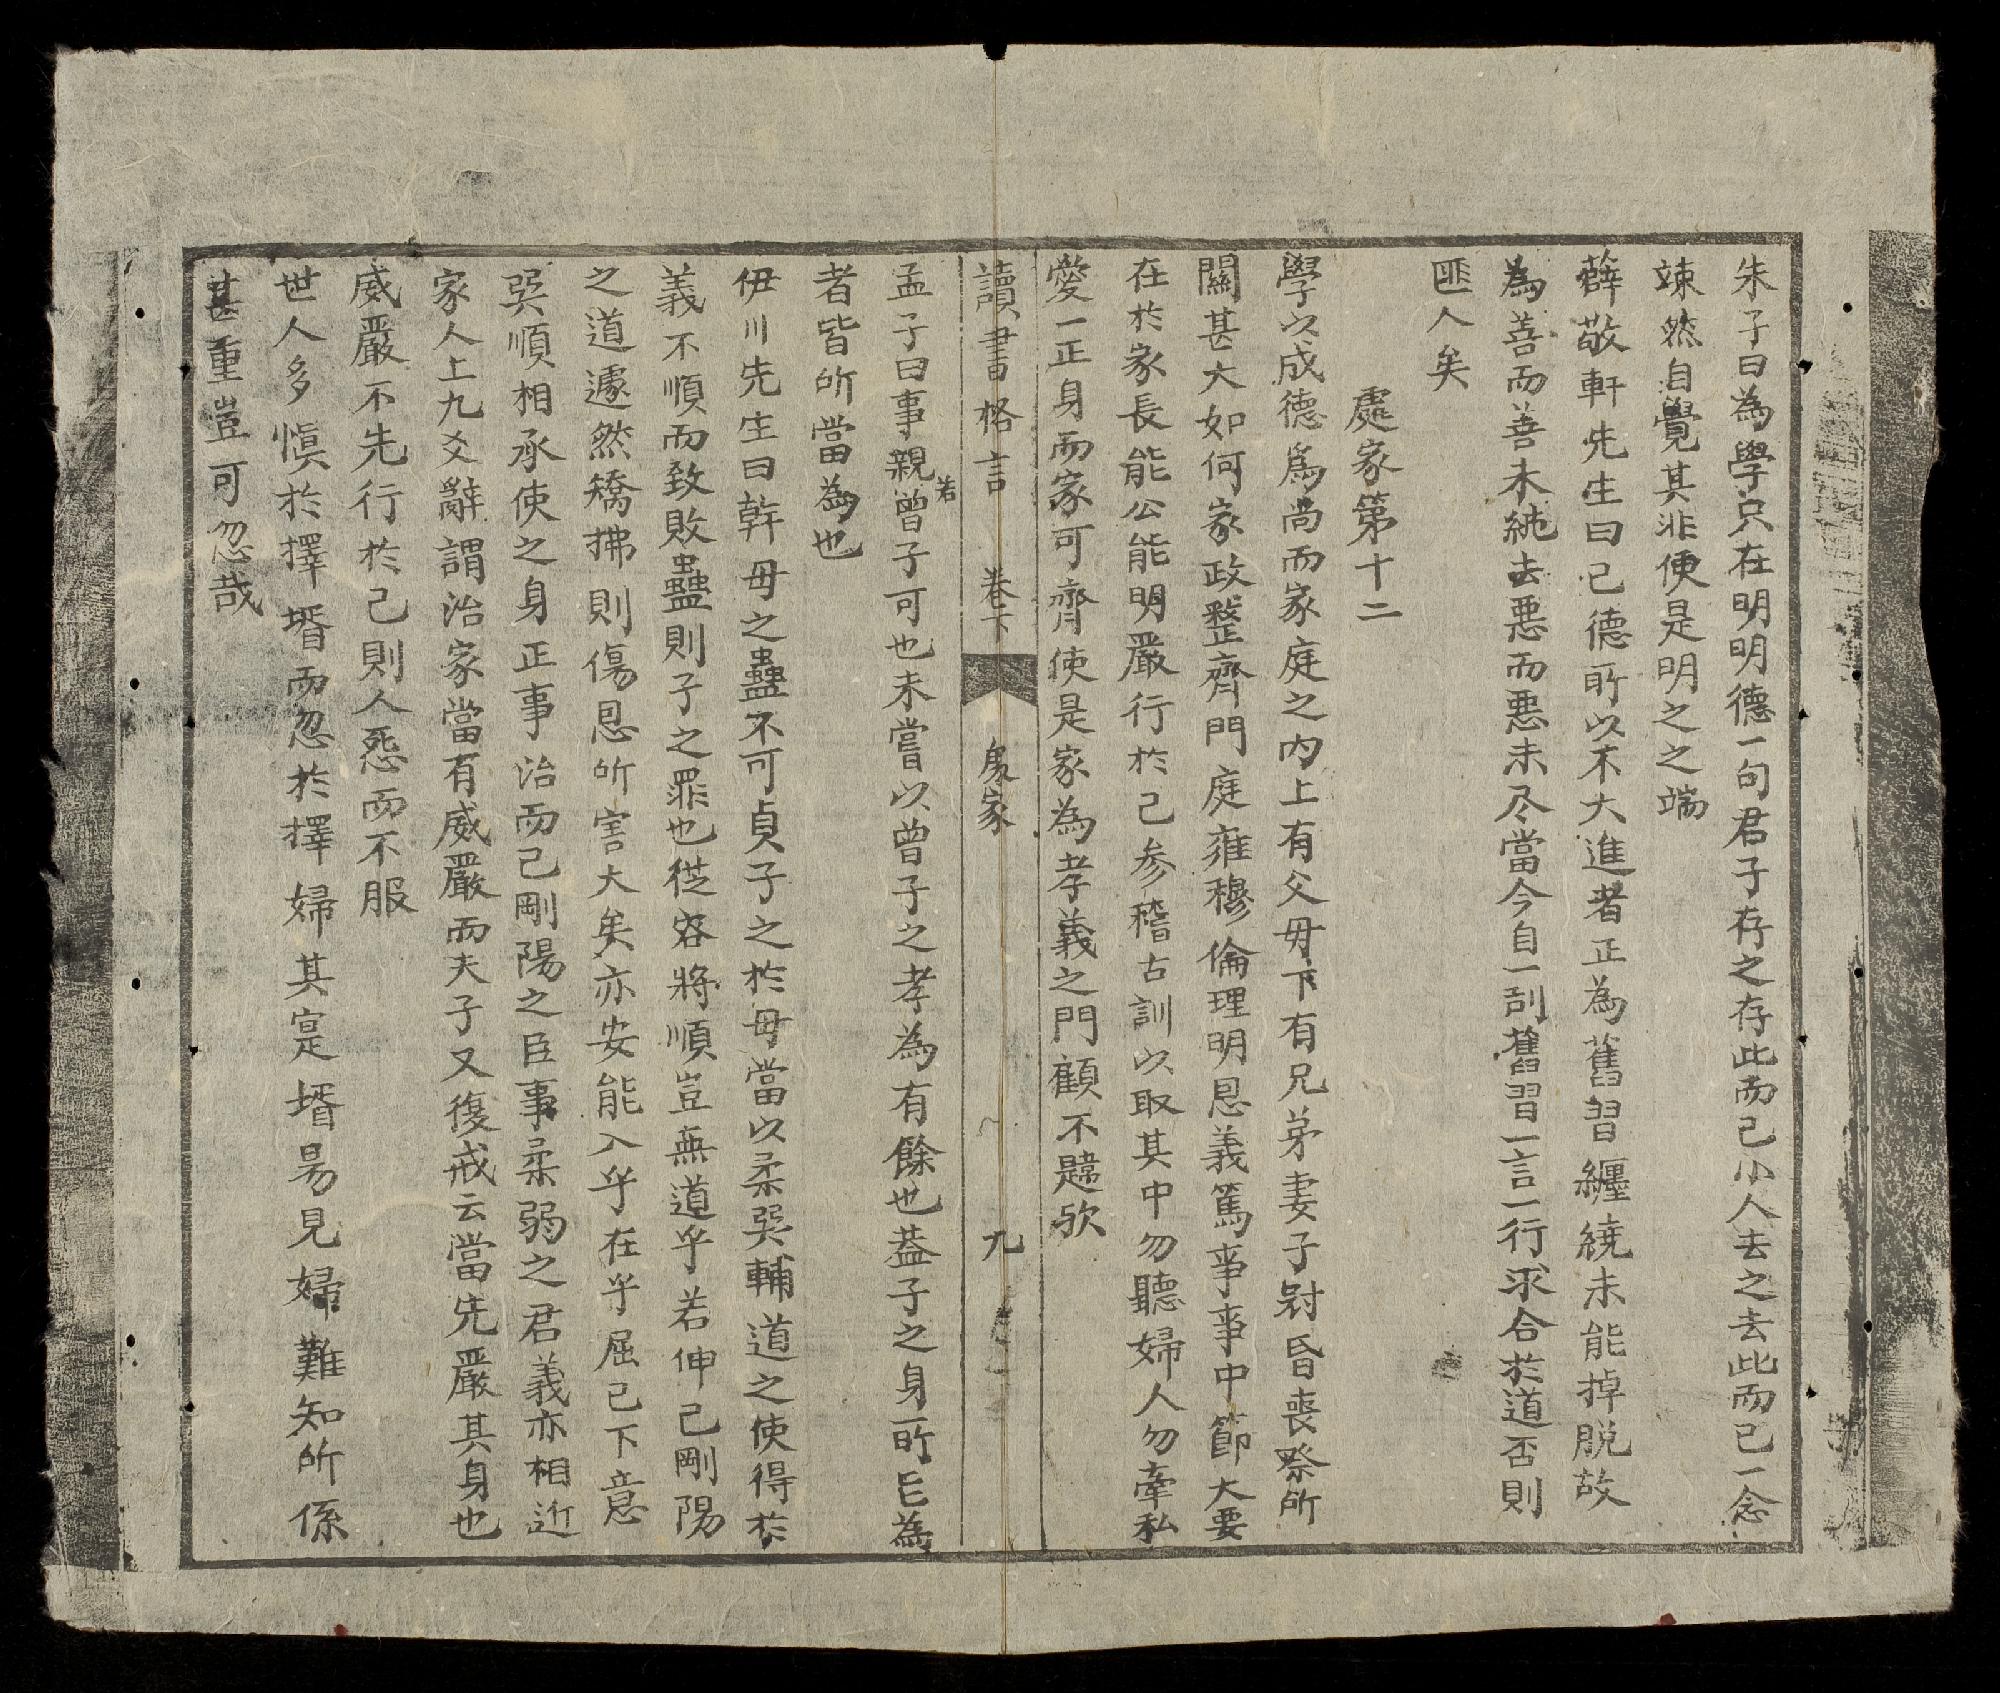 朱子曰為學只在明明德一句君子存之存此而已小人去之去此而已一念
竦然自覺其非便是明之之端
薛敬軒先生曰己德所以不大進者正為舊習纏繞未能掉脫故
為善而善未純去悪而悪未尽當今自一刮舊習一言一行求合於道否則
匪人矣
處家第十二
學以成德爲尚而家庭之內上有父母下有兄弟妻子冠昏喪祭所
關甚大如何家政整齊門庭雍穆倫理明恩義篤事事中節大要
在於家長能公能明嚴行於己参稽古訓以取其中勿聽婦人勿牽私
愛一正身而家可齊使是家為孝義之門顧不韙歟
讀書格言 卷下 處家 九
孟子曰事親若曾子可也未嘗以曾子之孝為有餘也蓋子之身所㠯為
者皆所當為也
伊川先生曰幹母之蠱不可貞子之於母當以柔巽輔道之使得於
義不順而致敗蠱則子之罪也從容將順豈無道乎若伸己剛陽
之道遽然矯拂則傷恩所害大矣亦安能入乎在乎屈己下意
巽順相承使之身正事治而已剛陽之臣事柔弱之君義亦相近
家人上九爻辭謂治家當有威嚴而夫子又復戒云當先嚴其身也
威嚴不先行於己則人怨而不服
世人多愼於擇壻而忽於擇婦其寔壻易見婦難知所係
甚重豈可忽哉